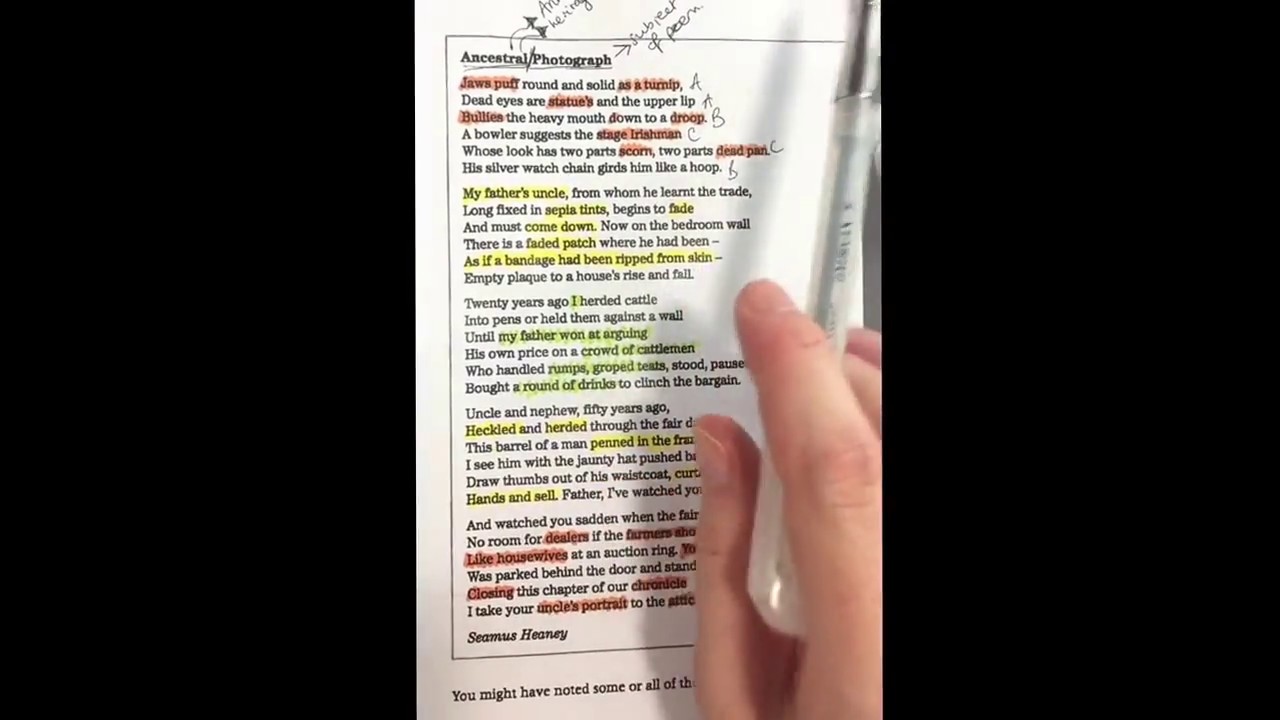 subject
of poem.
Ancestral/Photograph
Jaws puff round and solid as a turnip, A
Dead eyes are statue's and the upper lip A
Bullies the heavy mouth down to a droop. B
A bowler suggests the stage Irishman C
Whose look has two parts scorn, two parts dead pan. C
His silver watch chain girds him like a hoop. B
My father's uncle, from whom he learnt the trade,
Long fixed in sepia tints, begins to fade
And must come down. Now on the bedroom wall
There is a faded patch where he had been –
As if a bandage had been ripped from skin –
Empty plaque to a house's rise and fall.
Twenty years ago I herded cattle
Into pens or held them against a wall
Until my father won at arguing
His own price on a crowd of cattlemen
Who handled rumps, groped teats, stood, pause
Bought a round of drinks to clinch the bargain.
Uncle and nephew, fifty years ago,
Heckled and herded through the fair d
This barrel of a man penned in the fra
I see him with the jaunty hat pushed ba
Draw thumbs out of his waistcoat, curt
Hands and sell. Father, I've watched yo
And watched you sadden when the fair
No room for dealers if the farmers sho
Like housewives at an auction ring. Yo
Was parked behind the door and stand
Closing this chapter of our chronicle
I take your uncle's portrait to the attic
Seamus Heaney
You might have noted some or all of th